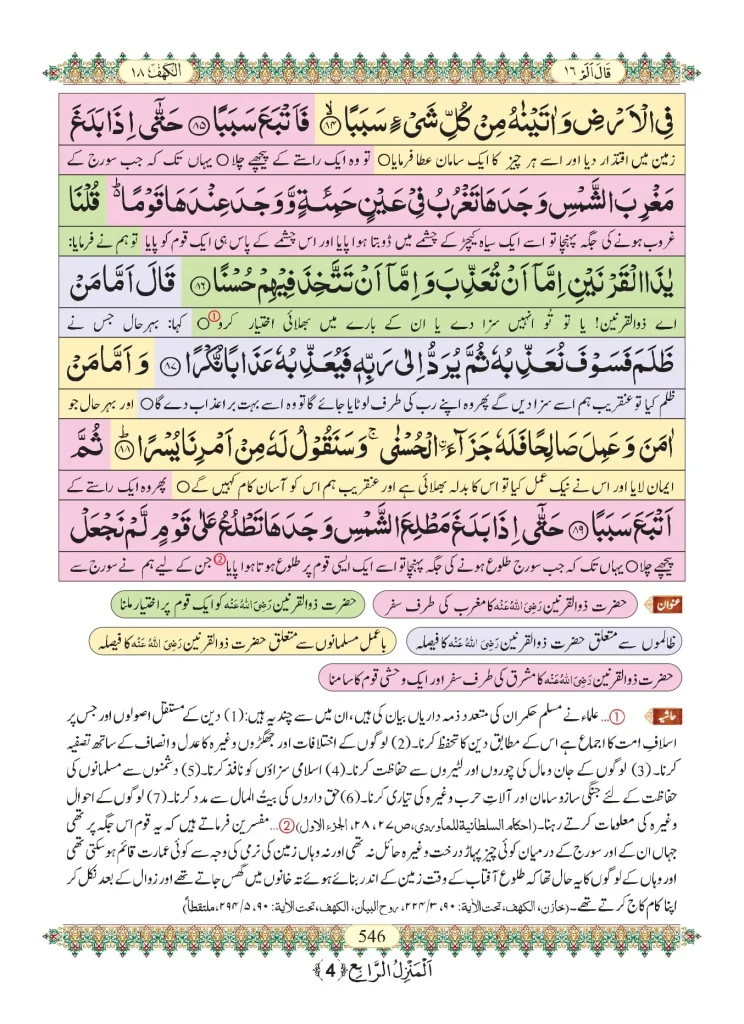 قَالَ اَلَمْ ١٦
الكهف ١٨
فِی الْاَرْضِ وَاٰتَیْنٰهُ مِنْ كُلِّ شَیْءٍ سَبَبًاۙ ﴿۸۴﴾ فَاَتْبَعَ سَبَبًا ﴿۸۵﴾ حَتّٰۤی اِذَا بَلَغَ
زمین میں اقتدار دیا اور اسے ہر چیز کا ایک سامان عطا فرمایا○ تو وہ ایک راستے کے پیچھے چلا○ یہاں تک کہ جب سورج کے
مَغْرِبَ الشَّمْسِ وَجَدَهَا تَغْرُبُ فِیْ عَیْنٍ حَمِئَةٍ وَّ وَجَدَ عِنْدَهَا قَوْمًا۬ؕ قُلْنَا
غروب ہونے کی جگہ پہنچا تو اسے ایک سیاہ کیچڑ کے چشمے میں ڈوبتا ہوا پایا اور اس چشمے کے پاس ہی ایک قوم کو پایا تو ہم نے فرمایا:
یٰذَا الْقَرْنَیْنِ اِمَّاۤ اَنْ تُعَذِّبَ وَ اِمَّاۤ اَنْ تَتَّخِذَ فِیْهِمْ حُسْنًا ﴿۸۶﴾ قَالَ اَمَّا مَنْ
اے ذوالقرنین! یا تو تُو انہیں سزا دے یا ان کے بارے میں بھلائی اختیار کرو①○ کہا: بہرحال جس نے
ظَلَمَ فَسَوْفَ نُعَذِّبُهٗ ثُمَّ یُرَدُّ اِلٰی رَبِّهٖ فَیُعَذِّبُهٗ عَذَابًا نُّكْرًا ﴿۸۷﴾ وَ اَمَّا مَنْ
ظلم کیا تو عنقریب ہم اسے سزا دیں گے پھر وہ اپنے رب کی طرف لوٹایا جائے گا تو وہ اسے بہت برا عذاب دے گا○ اور بہرحال جو
اٰمَنَ وَ عَمِلَ صَالِحًا فَلَهٗ جَزَآءَ ِۨالْحُسْنٰیۚ وَ سَنَقُوْلُ لَهٗ مِنْ اَمْرِنَا یُسْرًاؕ ﴿۸۸﴾ ثُمَّ
ایمان لایا اور اس نے نیک عمل کیا تو اس کا بدلہ بھلائی ہے اور عنقریب ہم اس کو آسان کام کہیں گے○ پھر وہ ایک راستے کے
اَتْبَعَ سَبَبًا ﴿۸۹﴾ حَتّٰۤی اِذَا بَلَغَ مَطْلِعَ الشَّمْسِ وَجَدَهَا تَطْلُعُ عَلٰی قَوْمٍ لَّمْ نَجْعَلْ
پیچھے چلا○ یہاں تک کہ جب سورج طلوع ہونے کی جگہ پہنچا تو اسے ایک ایسی قوم پر طلوع ہوتا ہوا پایا② جن کے لیے ہم نے سورج سے
عنوان حضرت ذوالقرنین رَضِیَ اللهُ عَنْه کا مغرب کی طرف سفر حضرت ذوالقرنین رَضِیَ اللهُ عَنْه کو ایک قوم پر اختیار ملنا
ظالموں سے متعلق حضرت ذوالقرنین رَضِیَ اللهُ عَنْه کا فیصلہ باعمل مسلمانوں سے متعلق حضرت ذوالقرنین رَضِیَ اللهُ عَنْه کا فیصلہ
حضرت ذوالقرنین رَضِیَ اللهُ عَنْه کا مشرق کی طرف سفر اور ایک وحشی قوم کا سامنا
حاشیہ ①... علماء نے مسلم حکمران کی متعدد ذمہ داریاں بیان کی ہیں، ان میں سے چند یہ ہیں: (1) دین کے مستقل اصولوں اور جس پر
اسلافِ امت کا اجماع ہے اس کے مطابق دین کا تحفظ کرنا۔ (2) لوگوں کے اختلافات اور جھگڑوں وغیرہ کا عدل و انصاف کے ساتھ تصفیہ
کرنا۔ (3) لوگوں کے جان و مال کی چوروں اور لٹیروں سے حفاظت کرنا۔ (4) اسلامی سزاؤں کو نافذ کرنا۔ (5) دشمنوں سے مسلمانوں کی
حفاظت کے لئے جنگی ساز و سامان اور آلاتِ حرب وغیرہ کی تیاری کرنا۔ (6) حق داروں کی بیتُ المال سے مدد کرنا۔ (7) لوگوں کے احوال
وغیرہ کی معلومات کرتے رہنا۔ (احکام السلطانیة للماوردی، ص۲۷، ۲۸، الجزء الاول) ②... مفسرین فرماتے ہیں کہ یہ قوم اس جگہ پر تھی
جہاں ان کے اور سورج کے درمیان کوئی چیز پہاڑ درخت وغیرہ حائل نہ تھی اور نہ وہاں زمین کی نرمی کی وجہ سے کوئی عمارت قائم ہو سکتی تھی
اور وہاں کے لوگوں کا یہ حال تھا کہ طلوع آفتاب کے وقت زمین کے اندر بنائے ہوئے تہ خانوں میں گھس جاتے تھے اور زوال کے بعد نکل کر
اپنا کام کاج کرتے تھے۔ (خازن، الکهف، تحت الآیة: ۹۰، ۳/۲۲۴، روح البیان، الکهف، تحت الآیة: ۹۰، ۵/۲۹۴، ملتقطاً)
546
اَلْمَنْزِلُ الرَّابِع ﴿4﴾